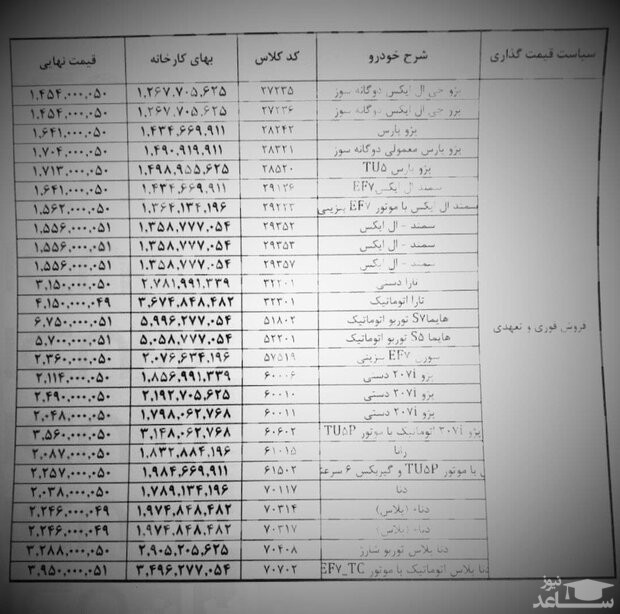 سیاست قیمت گذاری شرح خودرو کد کلاس بهای کارخانه قیمت نهایی
پژو جی ال ایکس دوگانه سوز ۲۷۲۳۵ ۱,۲۶۷,۷۰۵,۶۲۵ ۱,۴۵۴,۰۰۰,۰۵۰
پژو جی ال ایکس دوگانه سوز ۲۷۲۳۶ ۱,۲۶۷,۷۰۵,۶۲۵ ۱,۴۵۴,۰۰۰,۰۵۰
پژو پارس ۲۸۲۴۲ ۱,۴۳۴,۶۶۹,۹۱۱ ۱,۶۴۱,۰۰۰,۰۵۰
پژو پارس معمولی دوگانه سوز ۲۸۳۲۱ ۱,۴۹۰,۹۱۹,۹۱۱ ۱,۷۰۴,۰۰۰,۰۵۰
پژو پارس TU۵ ۲۸۵۲۰ ۱,۴۹۸,۹۵۵,۶۲۵ ۱,۷۱۳,۰۰۰,۰۵۰
سمند ال ایکس EF۷ ۲۹۱۳۶ ۱,۴۳۴,۶۶۹,۹۱۱ ۱,۶۴۱,۰۰۰,۰۵۰
سمند ال ایکس با موتور EF۷ بنزینی ۲۹۲۲۳ ۱,۳۶۴,۱۳۴,۱۹۶ ۱,۵۶۲,۰۰۰,۰۵۰
سمند - ال ایکس ۲۹۳۵۲ ۱,۳۵۸,۷۷۷,۰۵۴ ۱,۵۵۶,۰۰۰,۰۵۱
سمند - ال ایکس ۲۹۳۵۳ ۱,۳۵۸,۷۷۷,۰۵۴ ۱,۵۵۶,۰۰۰,۰۵۱
سمند - ال ایکس ۲۹۳۵۷ ۱,۳۵۸,۷۷۷,۰۵۴ ۱,۵۵۶,۰۰۰,۰۵۱
تارا دستی ۳۲۲۰۱ ۲,۷۸۱,۹۹۱,۳۳۹ ۳,۱۵۰,۰۰۰,۰۵۰
تارا اتوماتیک ۳۲۳۰۱ ۳,۶۷۴,۸۴۸,۴۸۲ ۴,۱۵۰,۰۰۰,۰۴۹
هایما S۷ توربو اتوماتیک ۵۱۸۰۲ ۵,۹۹۶,۲۷۷,۰۵۴ ۶,۷۵۰,۰۰۰,۰۵۱
هایما S۵ توربو اتوماتیک ۵۲۲۰۱ ۵,۰۵۸,۷۷۷,۰۵۴ ۵,۷۰۰,۰۰۰,۰۵۱
فروش فوری و تعهدی
سورن EF۷ بنزینی ۵۷۵۱۹ ۲,۰۷۶,۶۳۴,۱۹۶ ۲,۳۶۰,۰۰۰,۰۵۰
پژو ۲۰۷i دستی ۶۰۰۰۶ ۱,۸۵۶,۹۹۱,۳۳۹ ۲,۱۱۴,۰۰۰,۰۵۰
پژو ۲۰۷i دستی ۶۰۰۱۰ ۲,۱۹۲,۷۰۵,۶۲۵ ۲,۴۹۰,۰۰۰,۰۵۰
پژو ۲۰۷i دستی ۶۰۰۱۱ ۱,۷۹۸,۰۶۲,۷۶۸ ۲,۰۴۸,۰۰۰,۰۵۰
پژو ۲۰۷i اتوماتیک با موتور TU۵P ۶۰۶۰۲ ۳,۱۴۸,۰۶۲,۷۶۸ ۳,۵۶۰,۰۰۰,۰۵۰
رانا ۶۱۰۱۵ ۱,۸۳۲,۸۸۴,۱۹۶ ۲,۰۸۷,۰۰۰,۰۵۰
با موتور TU۵P و گیربکس ۶ سرعته ۶۱۵۰۲ ۱,۹۸۴,۶۶۹,۹۱۱ ۲,۲۵۷,۰۰۰,۰۵۰
دنا ۷۰۱۱۷ ۱,۷۸۹,۱۳۴,۱۹۶ ۲,۰۳۸,۰۰۰,۰۵۰
دنا+ (پلاس) ۷۰۳۱۴ ۱,۹۷۴,۸۴۸,۴۸۲ ۲,۲۴۶,۰۰۰,۰۴۹
دنا+ (پلاس) ۷۰۳۱۷ ۱,۹۷۴,۸۴۸,۴۸۲ ۲,۲۴۶,۰۰۰,۰۴۹
دنا پلاس توربو شارژ ۷۰۴۰۸ ۲,۹۰۵,۲۰۵,۶۲۵ ۳,۲۸۸,۰۰۰,۰۵۰
دنا پلاس اتوماتیک با موتور EF۷_TC ۷۰۷۰۲ ۳,۴۹۶,۲۷۷,۰۵۴ ۳,۹۵۰,۰۰۰,۰۵۱
ساعد نیوز